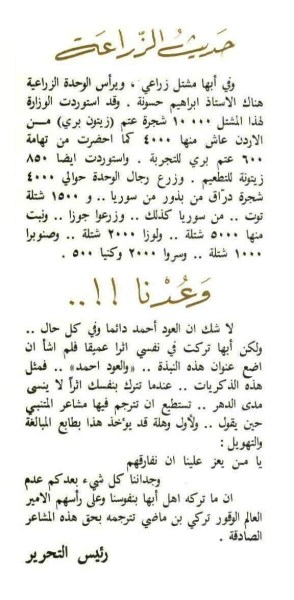 حديث الزراعة
وفي أبها مشتل زراعي ، ويرأس الوحدة الزراعية
هناك الاستاذ ابراهيم حسونة . وقد استوردت الوزارة
لهذا المشتل ١٠٠٠٠ شجرة عتم (زيتون بري) مـــن
الاردن عاش منها ٤٠٠٠ كما احضرت من تهامة
٦٠٠ عتم بري للتجربة . واستوردت ايضا ٨٥٠
زيتونة للتطعيم . وزرع رجال الوحدة حوالي ٤٠٠٠
شجرة درّاق من بذور من سوريا .. و ١٥٠٠ شتلة
توت .. من سوريا كذلك .. وزرعوا جوزا .. ونبت
منها ٥٠٠٠ شتلة .. ولوزا ٢٠٠٠ شتلة .. وصنوبرا
١٠٠٠ شتلة .. وسروا ٢٠٠٠ وكنيا ٥٠٠ .
وَعُدْنا !! ..
لا شك ان العود أحمد دائما وفي كل حال ..
ولكن أبها تركت في نفسي اثرا عميقا فلم اشأ ان
اضع عنوان هذه النبذة .. «والعود احمد» .. فمثل
هذه الذكريات .. عندما تترك بنفسك اثراً لا ينسى
مدى الدهر .. تستطيع ان تترجم فيها مشاعر المتنبي
حين يقول .. ولأول وهلة قد يؤخذ هذا بطابع المبالغة
والتهويل :
يا مــن يعز علينا ان نفارقهم
وجداننا كل شيء بعدكم عدم
ان ما تركه اهل أبها بنفوسنا وعلى رأسهم الامير
العالم الوقور تركي بن ماضي تترجمه بحق هذه المشاعر
الصادقة .
رئيس التحرير